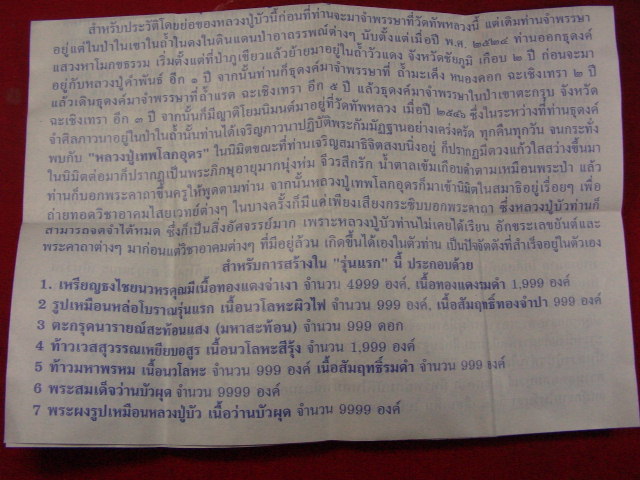 สำหรับประวัติโดยย่อของหลวงปู่บัวนี้ก่อนที่ท่านจะมาจำพรรษาที่วัดทัพหลวงนี้ แต่เดิมท่านจำพรรษา
อยู่แต่ในป่าในเขาในถ้ำในดงในดินแดนป่าอาถรรพณ์ต่างๆ นับตั้งแต่เมื่อปี พ.ศ. ๒๕๒๔ ท่านออกธุดงค์
แสวงหาโมกขธรรม เริ่มตั้งแต่ที่ป่าภูเขียวแล้วย้ายมาอยู่ในถ้ำวัวแดง จังหวัดชัยภูมิ เกือบ ๒ ปี ก่อนจะมา
อยู่กับหลวงปู่คำพันธ์ อีก ๑ ปี จากนั้นท่านก็ธุดงค์มาจำพรรษาที่ ถ้ำมะเค็ง หนองคอก ฉะเชิงเทรา ๒ ปี
แล้วเดินธุดงค์มาจำพรรษาที่ถ้ำแรต ฉะเชิงเทรา อีก ๕ ปี แล้วธุดงค์มาจำพรรษาในป่าเขาตะกรุบ จังหวัด
ฉะเชิงเทรา อีก ๓ ปี จากนั้นก็มีญาติโยมนิมนต์มาอยู่ที่วัดทัพหลวง เมื่อปี ๒๕๔๖ ซึ่งในระหว่างที่ท่านธุดงค์
จำศีลภาวนาอยู่ในป่าในถ้ำนั้นท่านได้เจริญภาวนาปฏิบัติพระกัมมัฏฐานอย่างเคร่งครัด ทุกคืนทุกวัน จนกระทั่ง
พบกับ "หลวงปู่เทพโลกอุดร" ในนิมิตขณะที่ท่านเจริญสมาธิจิตสงบนิ่งอยู่ ก็ปรากฏมีดวงแก้วใสสว่างขึ้นมา
ในนิมิตต่อมาก็ปรากฏเป็นพระภิกษุอายุมากนุ่งห่ม จีวรสีกรัก น้ำตาลเข้มเกือบดำตามเหมือนพระป่า แล้ว
ท่านก็บอกพระคาถาขึ้นครูให้พูดตามท่าน จากนั้นหลวงปู่เทพโลกอุดรก็มาเข้านิมิตในสมาธิอยู่เรื่อยๆ เพื่อ
ถ่ายทอดวิชาอาคมไสยเวทย์ต่างๆ ในบางครั้งก็มีแค่เพียงเสียงกระซิบบอกพระคาถา ซึ่งหลวงปู่บัวท่านก็
สามารถจดจำได้หมด ซึ่งก็เป็นสิ่งอัศจรรย์มาก เพราะหลวงปู่บัวท่านไม่เคยได้เรียน อักขระเลขยันต์และ
พระคาถาต่างๆ มาก่อนแต่วิชาอาคมต่างๆ ที่มีอยู่ล้วน เกิดขึ้นได้เองในตัวท่าน เป็นปัจจัตตังที่สำเร็จอยู่ในตัวเอง
สำหรับการสร้างใน "รุ่นแรก" นี้ ประกอบด้วย
1. เหรียญธงไชยนวหรคุณมีเนื้อทองแดงจำเงา จำนวน 4999 องค์, เนื้อทองแดงรมดำ 1,999 องค์
2 รูปเหมือนหล่อโบราณรุ่นแรก เนื้อนวโลหะผิวไฟ จำนวน 999 องค์, เนื้อสัมฤทธิ์ทองจำปา 999 องค์
3 ตะกรุดนารายณ์สะท้อนแสง (มหาสะท้อน) จำนวน 999 ดอก
4 ท้าวเวสสุวรรณเหยียบอสูร เนื้อนวโลหะสีรุ้ง จำนวน 1,999 องค์
5 ท้าวมหาพรหม เนื้อนวโลหะ จำนวน 999 องค์ เนื้อสัมฤทธิ์รมดำ จำนวน 999 องค์
6 พระสมเด็จว่านบัวผุด จำนวน 9999 องค์
7 พระผงรูปเหมือนหลวงปู่บัว เนื้อว่านบัวผุด จำนวน 9999 องค์